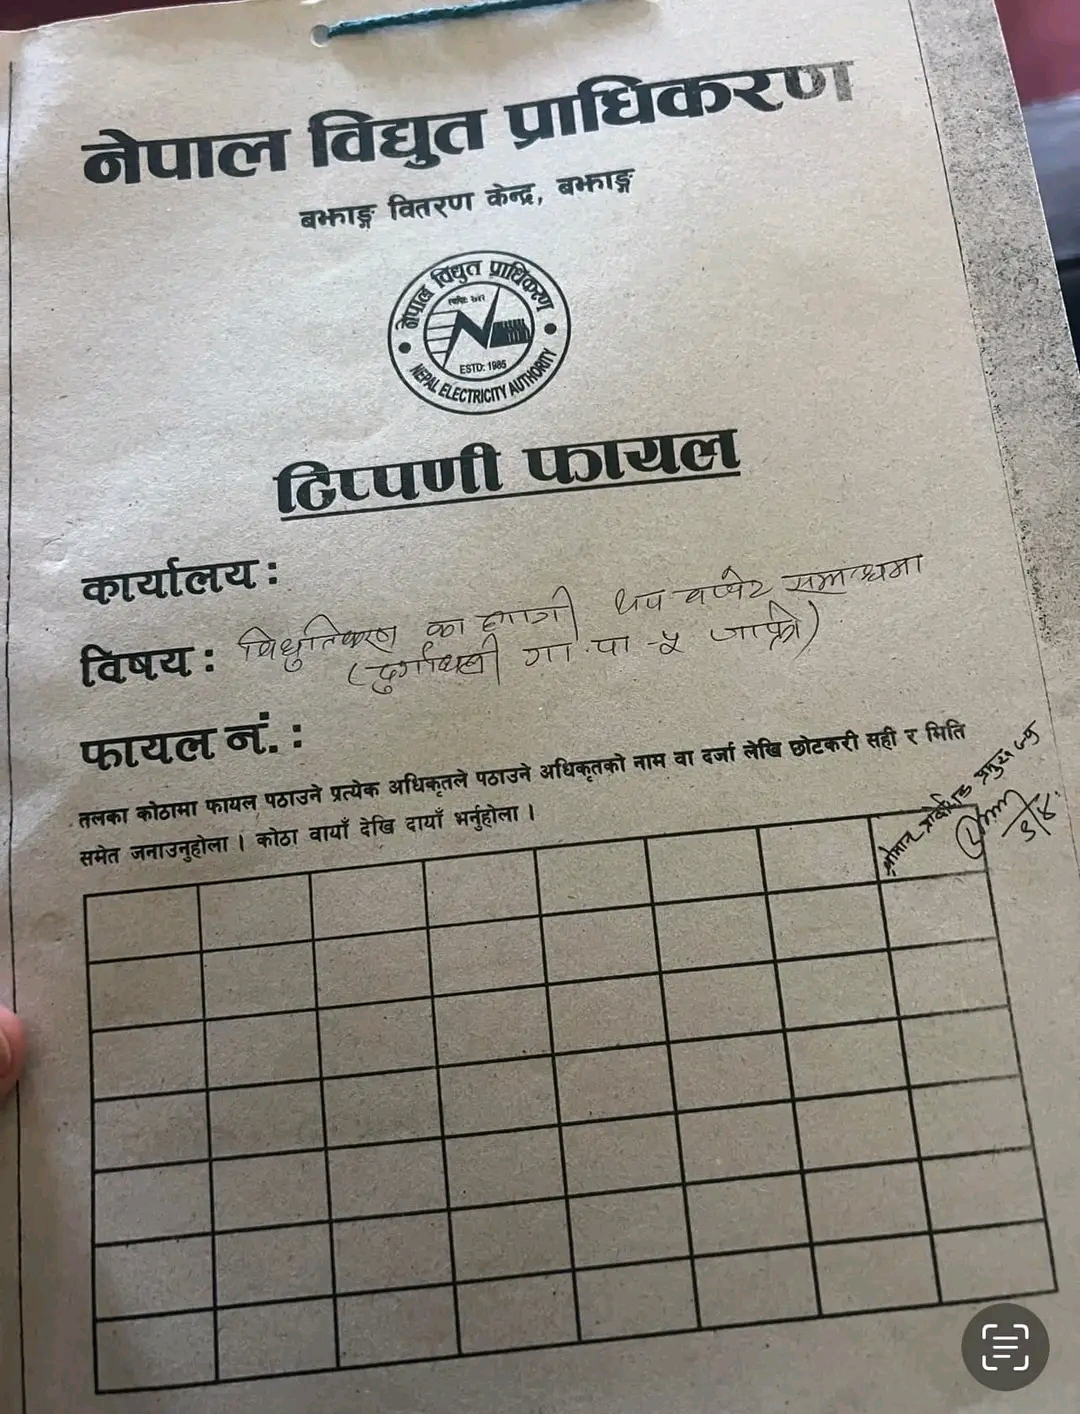 नेपाल विद्युत प्राधिकरण
बझाङ्ग वितरण केन्द्र, बझाङ्ग
नेपाल विद्युत प्राधिकरण
ESTD: 1985
NEPAL ELECTRICITY AUTHORITY
टिप्पणी फायल
कार्यालय :
विषय : विधुतिकरण का लागी थप बजेट सम्बन्धमा
(दुर्गाथली गा.पा -५
फायल नं. :
तलका कोठामा फायल पठाउने प्रत्येक अधिकृतले पठाउने अधिकृतको नाम वा दर्जा लेखि छोटकरी सही र मिति
समेत जनाउनुहोला । कोठा वायाँ देखि दायाँ भर्नुहोला ।
श्रीमान्
३/४